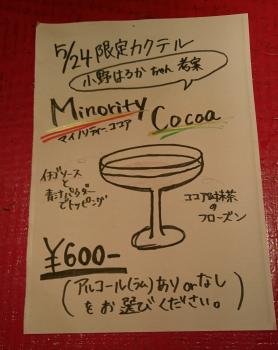 5/24 限定カクテル
小野はるかちゃん考案
Minority Cocoa
マイノリティーココア
イチゴソースと
青汁パウダー
でトッピング
ココア味抹茶
の
フローズン
¥600-
(アルコール(ラム)あり or なし
をお選びください。)